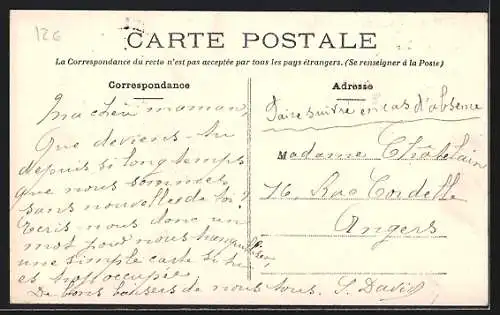 126
CARTE POSTALE
La Correspondance du recto n'est pas acceptée par tous les pays étrangers. (Se renseigner à la Poste)
Correspondance
Ma chère maman,
Que deviens-tu
depuis si longtemps
que nous sommes
sans nouvelles de toi?
Ecris nous donc un
mot pour nous tranquilliser,
une simple carte si tu
es trop occupée,
De bons baisers de nous tous. S. David
Adresse
Faire suivre en cas d'absence
Madame Châtelain
76, Rue Cordelle
Angers